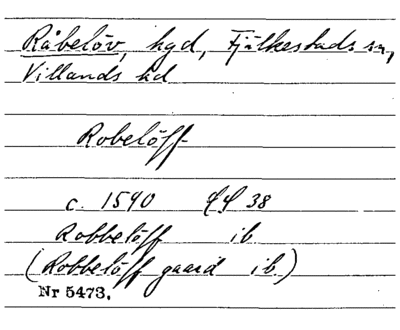 Råbelöv, hgd, Fjälkestads sn,
Villands hd
Robelöff
c. 1590 LL 38
Robbelöff ib.
(Robbelöff gaard ib.)
Nr 5473.